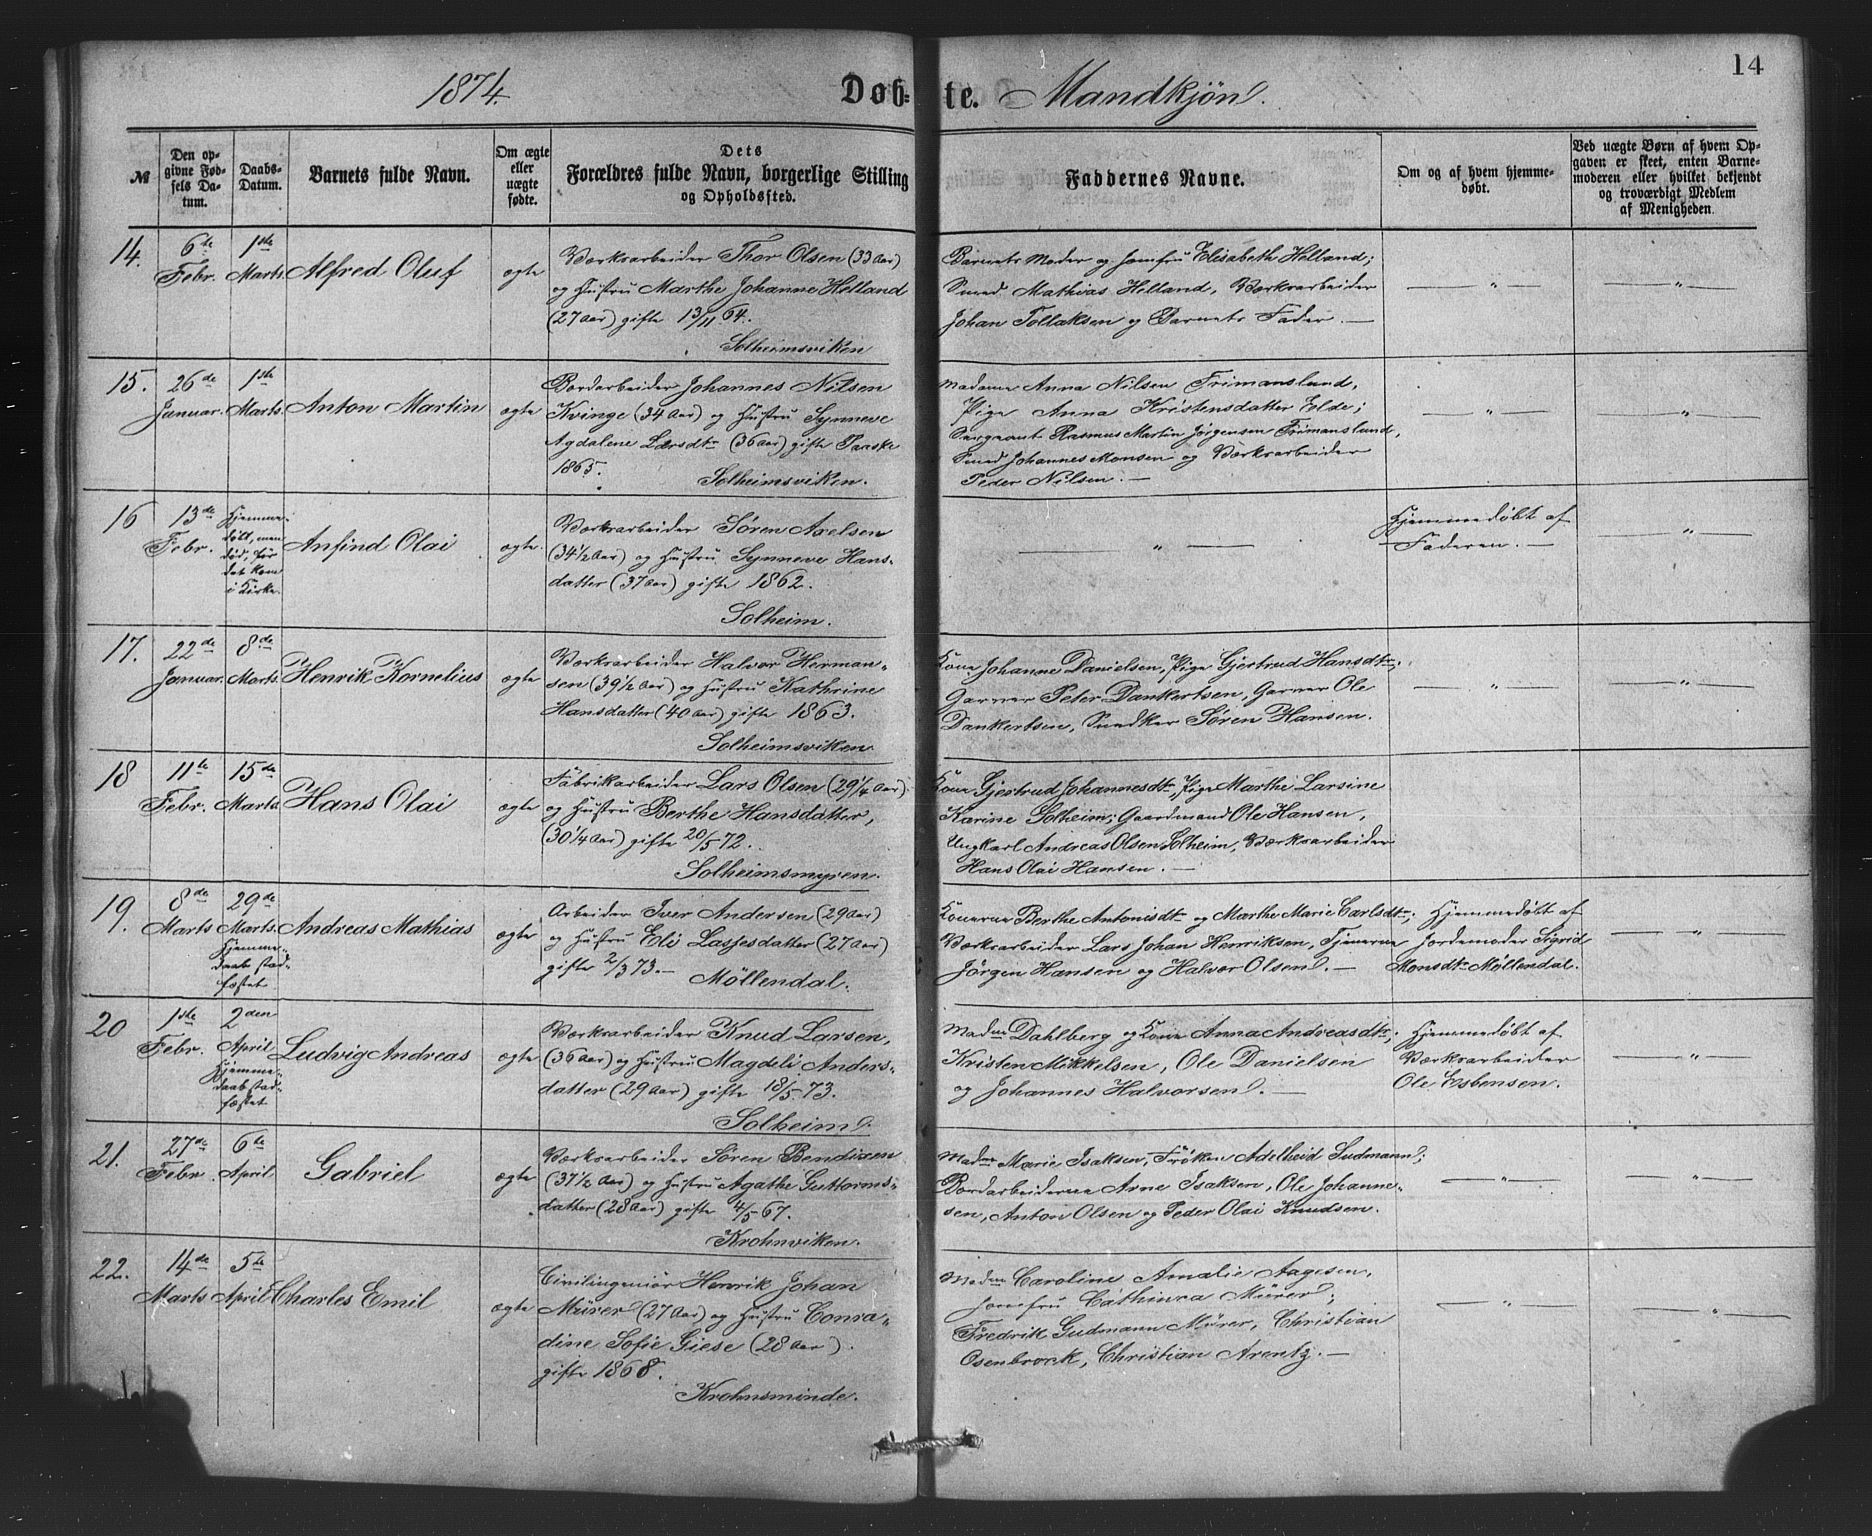 1874. Døb- te. Mandkjøn. 14
№ Den opgivne Fødsels Datum. Daabs-Datum. Barnets fulde Navn. Om ægte eller uægte fødte. Dets Forældres fulde Navn, borgerlige Stilling og Opholdssted. Faddernes Navne. Om og af hvem hjemmedøbt. Ved uægte Børn af hvem Opgaven er skeet, enten Barnemoderen eller hvilket bekjendt og troværdigt Medlem af Menigheden.
14. 6te Febr. 1ste Marts. Alfred Oluf ægte
Værksarbeider Thor Olsen (33 Aar)
og Hustru Marthe Johanne Helland
(27 Aar) gifte 13/11 64.
Solheimsviken
Barnets Moder og Jomfru Elisabeth Helland;
Smed Mathias Helland, Værksarbeider
Johan Tollaksen og Barnets Fader. —
— " —
— " —
15. 26de Januar. 1ste Marts. Anton Martin ægte
Bordarbeider Johannes Nilsen
Kvinge (34 Aar) og Hustru Synneve
Agdalene Larsdtr (36 Aar) gifte Paaske
1865.
Solheimsviken.
Madame Anna Nilsen Frimanslund,
Pige Anna Kristensdatter Elde;
Sergeant Rasmus Martin Jørgensen Frimanslund,
Smed Johannes Monsen og Værksarbeider
Peder Nilsen. —
— " —
— " —
16 13de Febr. Hjemme-
døbt, men
død, før
det kom
i Kirke.
Anfind Olai ægte.
Værksarbeider Søren Axelsen
(34 1/2 Aar) og Hustru Synneve Hans-
datter (37 Aar) gifte 1862.
Solheim.
— " —
Hjemmedøbt af
Faderen. —
— " —
17. 22de Januar. 8de Marts. Henrik Kornelius ægte
Værksarbeider Halvor Herman-
sen (39 1/2 Aar) og Hustru Kathrine
Hansdatter (40 Aar) gifte 1863.
Solheimsviken.
Kone Johanne Danielsen, Pige Gjertrud Hansdtr;
Garver Peter Dankertsen, Garver Ole
Dankertsen, Snedker Søren Hansen.
— " —
— " —
18 11te Febr. 15de Marts. Hans Olai ægte
Fabrikarbeider Lars Olsen (29 1/4 Aar)
og Hustru Berthe Hansdatter,
(30 1/4 Aar) gifte 20/5 72.
Solheimsmyren.
Kone Gjertrud Johannesdtr, Pige Marthe Larsine
Karine Solheim; Gaardmand Ole Hansen,
Ungkarl Andreas Olsen Solheim, Værksarbeider
Hans Olai Hansen. —
19. 8de Marts. 29de Marts.
Hjemme-
daab stad-
fæstet
Andreas Mathias ægte
Arbeider Iver Andersen (29 Aar)
og Hustru Eli Lassesdatter (27 Aar)
gifte 2/3 73. —
Møllendal.
Konerne Berthe Antonisdtr og Marthe Marie Carlsdtr;
Værksarbeider Lars Johan Henriksen, Tjenerne
Jørgen Hansen og Halvor Olsen. —
Hjemmedøbt af
Jordemoder Sigrid
Monsdtr Møllendal.
— " —
20 1ste Febr. 2den April
Hjemme-
daab stad-
fæstet
Ludvig Andreas ægte
Værksarbeider Knud Larsen,
(36 Aar) og Hustru Magdeli Anders-
datter (29 Aar) gifte 18/5 73.
Solheim.
Madme Dahlberg og Kone Anna Andreasdtr;
Kristen Mikkelsen, Ole Danielsen
og Johannes Halvorsen. —
Hjemmedøbt af
Værksarbeider
Ole Esbensen.
— " —
21. 27de Febr. 6te April Gabriel ægte
Værksarbeider Søren Bendixen
(37 1/2 Aar) og Hustru Agathe Guttorms-
datter (28 Aar) gifte 4/5 67.
Krohnviken.
Madme Marie Isaksen, Frøken Adelheid Sudmann;
Bordarbeiderne Arne Isaksen, Ole Johanne-
sen, Anton Olsen og Peder Olai Knudsen.
— " —
— " —
22. 14de Marts 5te April Charles Emil ægte
Civilingeniør Henrik Johan
Mürer (27 Aar) og Hustru Conra-
dine Sofie Giese (28 Aar).
gifte 1868.
Krohnsminde.
Madme Caroline Amalie Aagesen,
Jomfru Cathinca Mürer;
Fredrik Gudmann Mürer, Christian
Osenbrock, Christian Arentz. —
— " —
— " —